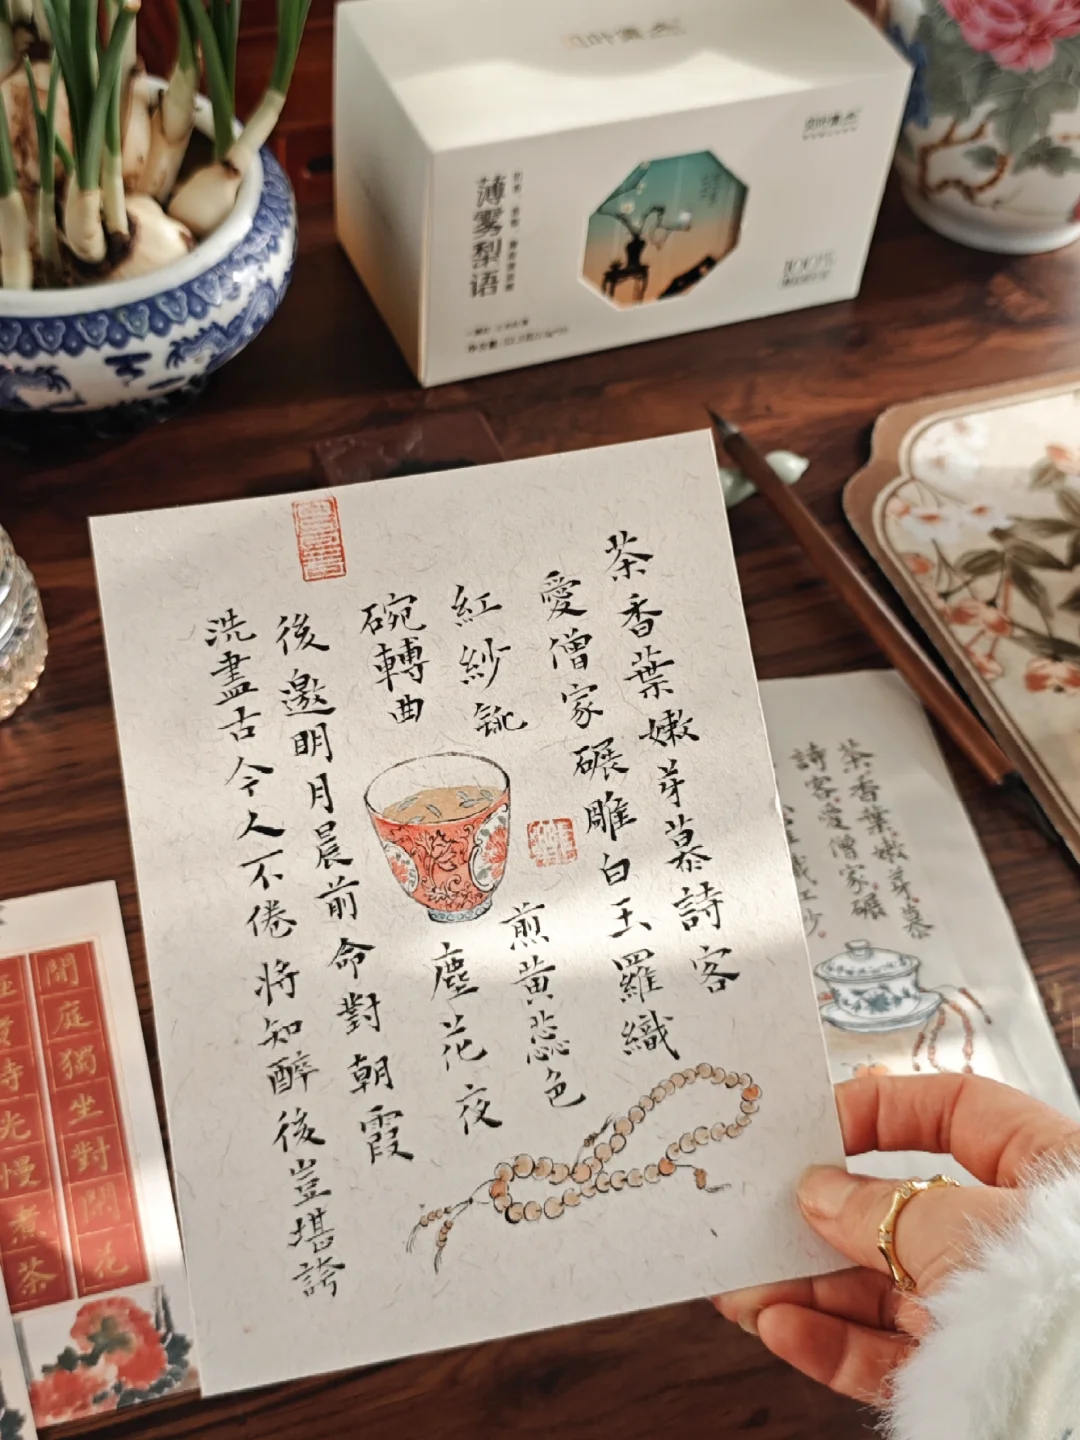 茶香葉嫩芽慕詩客
愛僧家碾雕白玉羅織
紅紗銚煎黃蕊色
碗轉曲塵花夜
後邀明月晨前命對朝霞
洗盡古今人不倦將知醉後豈堪誇
薄雾梨语
100%
茶香葉嫩芽慕
詩客愛僧家碾
閒庭獨坐對閒花
時光慢煮茶